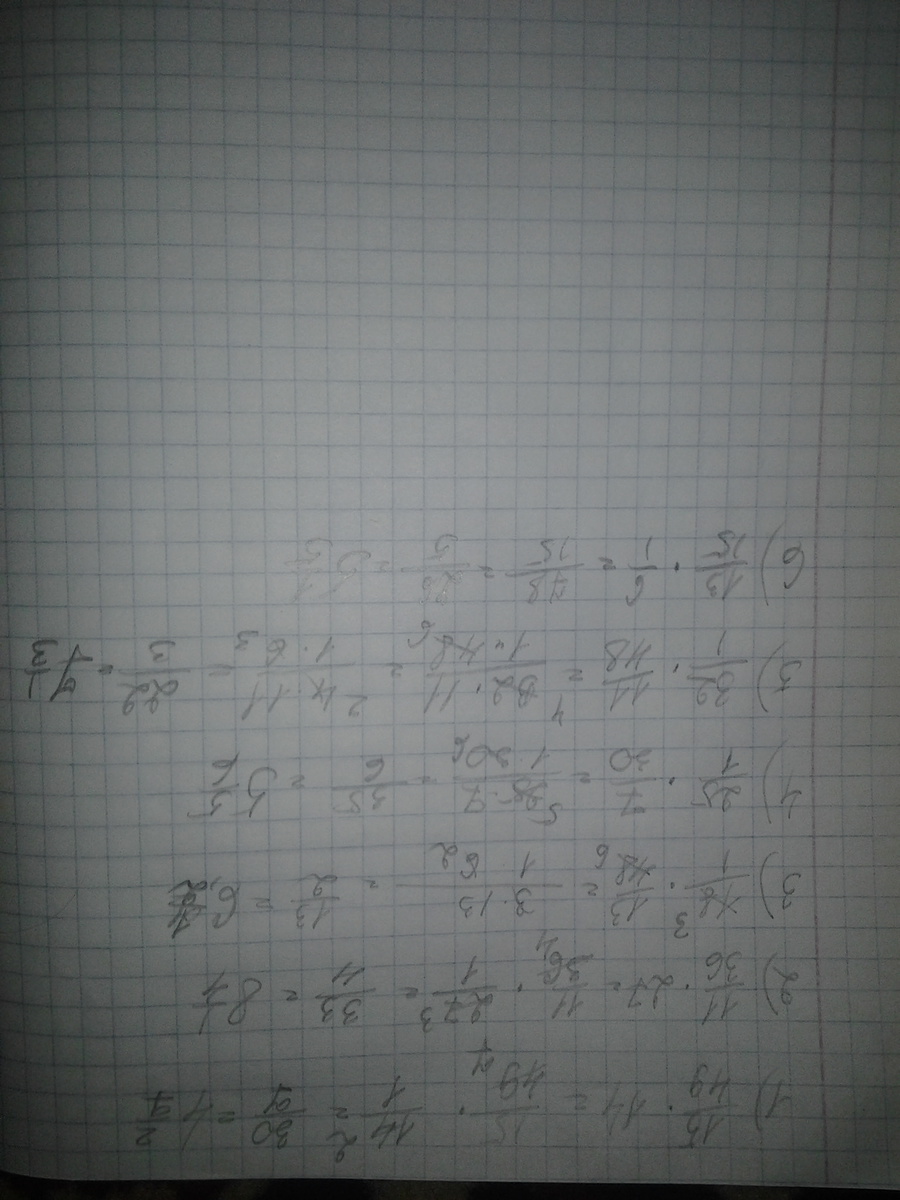 1) 15/49 · 14 = 15/49 7 · 14 2/1 = 30/7 = 4 2/7
2) 11/36 · 27 = 11/36 4 · 27 3/1 = 33/4 = 8 1/4
3) 18 3/1 · 13/48 6 = 3·13/1·6 2 = 13/2 = 6,
4) 25/1 · 7/30 = 25 5·7/1·30 6 = 35/6 = 5 5/6
5) 32/1 · 11/48 = 4 32·11/1·48 6 = 2 4·11/1·6 3 = 22/3 = 7 1/3
6) 13/15 · 6/1 = 78/15 = 26/5 = 5 1/5